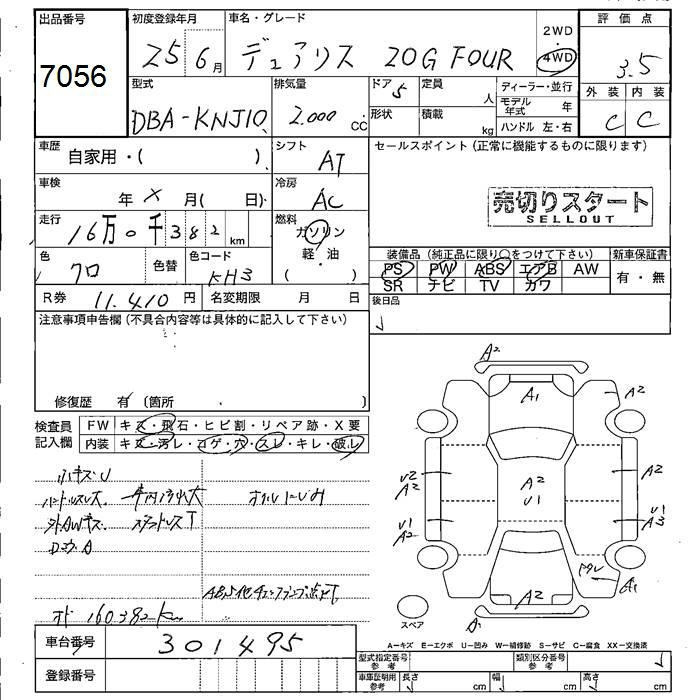 出品番号 初度登録年月 車名・グレード 評価点
7056 25 6月 デュアリス 20G FOUR 2WD・4WD 3.5
型式 排気量 ドア 定員 ディーラー・並行 外装 内装
DBA-KNJ10 2.000 CC 5 人 モデル年式 年 C C
形状 積載 kg ハンドル 左・右
車歴 自家用・( ) シフト AT セールスポイント(正常に機能するものに限ります)
車検 年 X 月( 日) 冷房 AC 売切りスタート
SELLOUT
走行 16万0千382km 燃料 ガソリン・軽油 ( )
装備品(純正品に限り○をつけて下さい) 新車保証書
色 クロ 色替 色コード KH3 PS PW ABS エアB AW 有・無
SR ナビ TV カワ
R券 11.410円 名変期限 月 日 後日品
注意事項申告欄(不具合内容等は具体的に記入して下さい)
修復歴 有 (箇所 )
検査員記入欄 FW キズ・飛石・ヒビ割・リペア跡・X要
内装 キズ・汚レ・コゲ・穴・スレ・キレ・破レ
小キズU
ハンドルスレ 車内汚れ大 オイルにじみ
外AWキズ スタットレスT
ABS他チェックランプ点灯
オド 160382km
車台番号 301495
登録番号
A2
A1 A2
U2 A2 A2 U1 A2
U1 A2 U1 A3
A2 A1
スペア
A1
A=キズ E=エクボ U=凹み W=補修跡 S=サビ C=腐食 XX=交換済
型式指定番号 参考 類別区分番号 参考
車庫証明用 参考 長さ cm 幅 cm 高さ cm